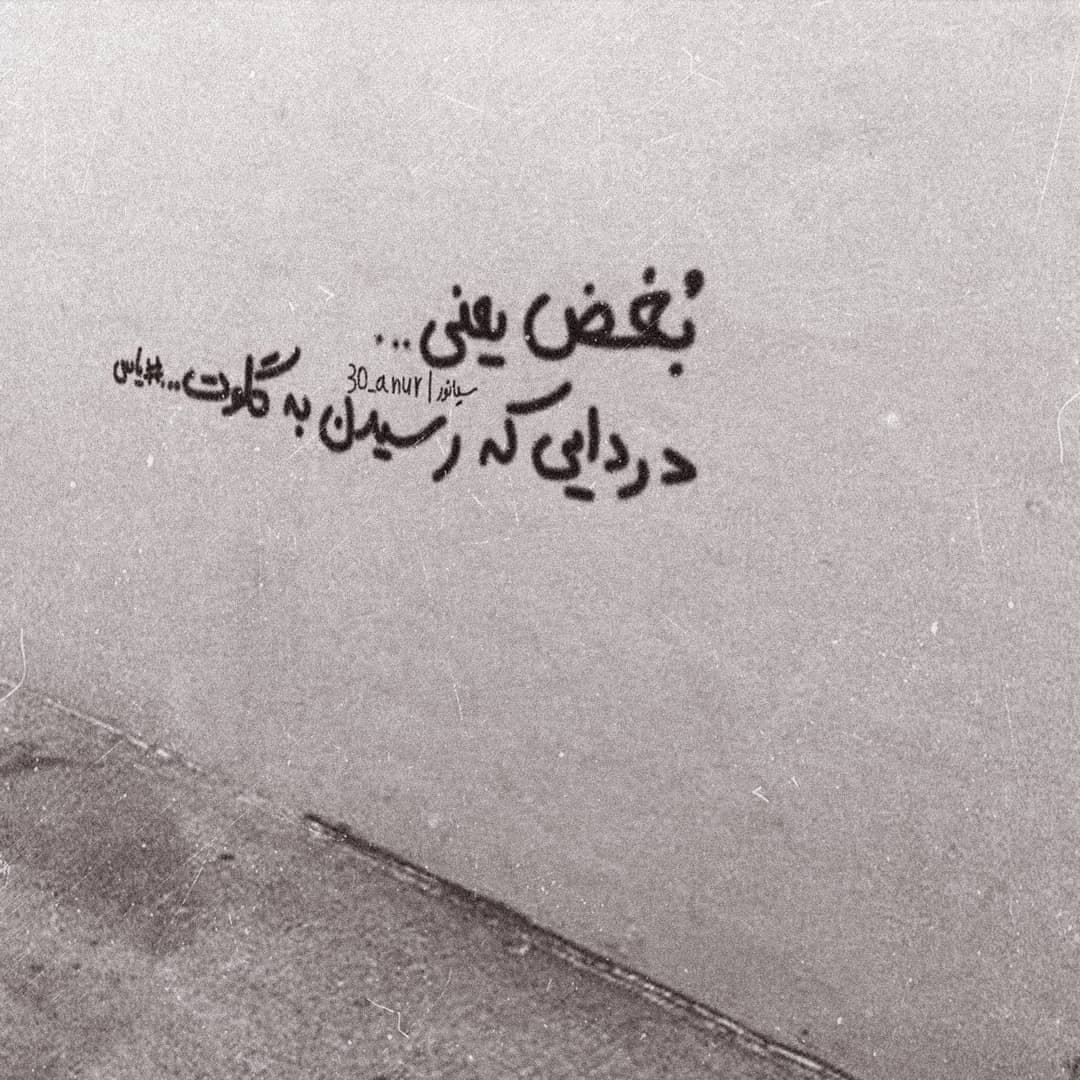 بُغض یعنی...
دردایی که رسیدن به گلوت...#یاس
سیانور|30_anur